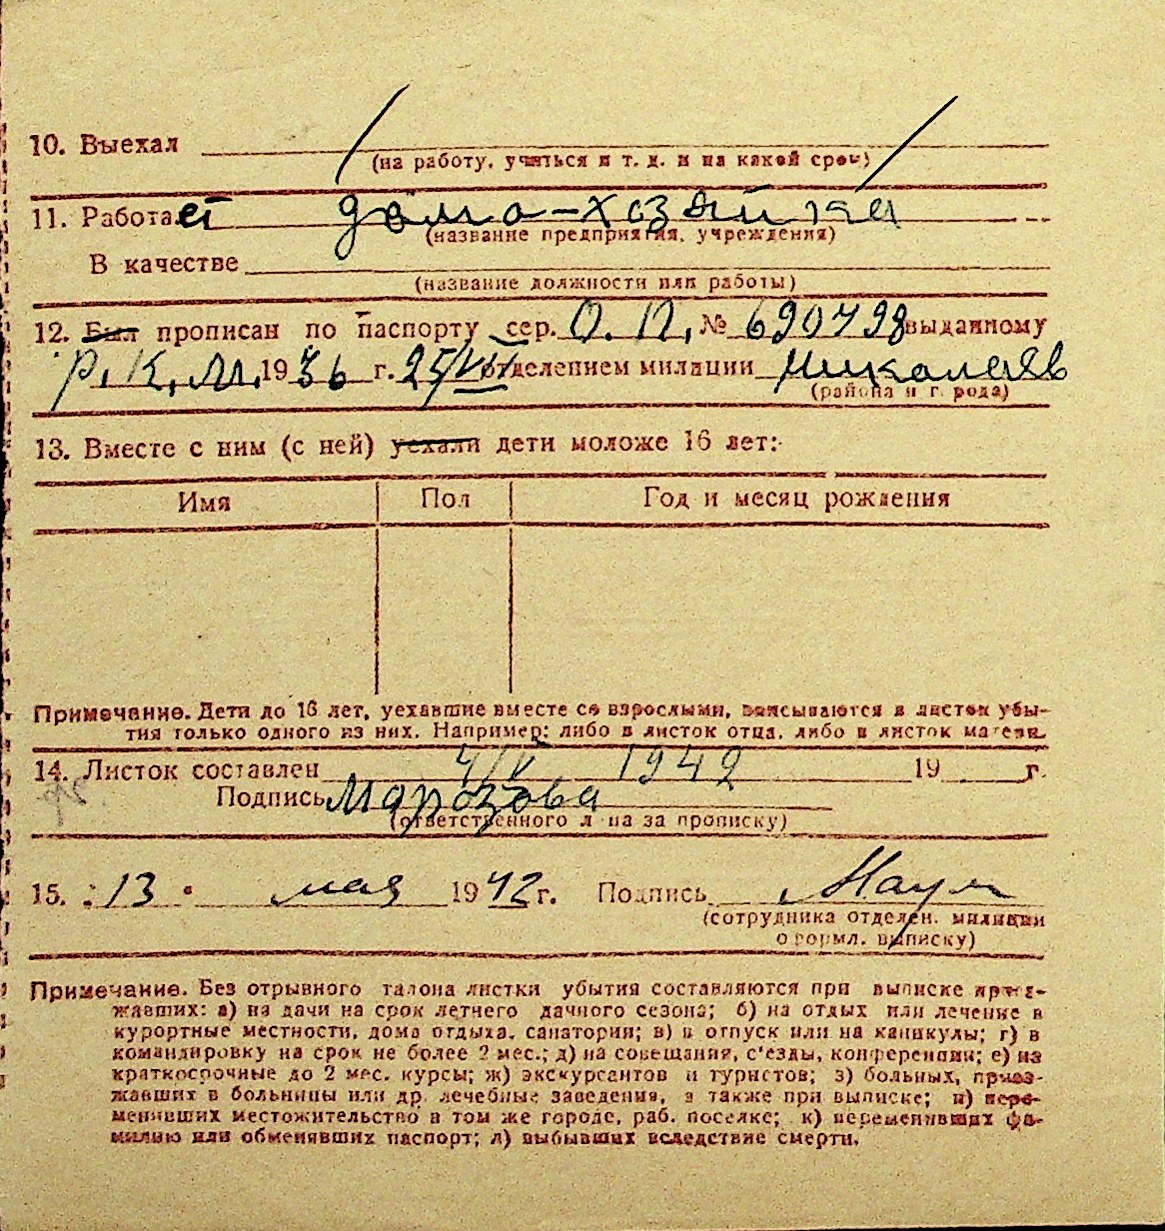 10. Выехал
(на работу, учиться и т. д. и на какой срок)
11. Работает дома-хозяйка
(название предприятия, учреждения)
В качестве
(название должности или работы)
12. Был прописан по паспорту сер. О. П, № 690798 выданному
Р. К. М. 1936 г. 25/VII отделением милации Николаев
(района и города)
13. Вместе с ним (с ней) уехали дети моложе 16 лет:
Имя Пол Год и месяц рождения
Примечание. Дети до 16 лет, уехавшие вместе со взрослыми, вписываются в листок убы-
тия только одного из них. Например: либо в листок отца, либо в листок матери.
14. Листок составлен 4/V 1942 19 г.
Подпись Марозова
(ответственного лица за прописку)
15. 13 мая 1942 г. Подпись
(сотрудника отделен. милиции
оформл. выписку)
Примечание. Без отрывного талона листки убытия составляются при выписке приез-
жавших: а) на дачи на срок летнего дачного сезона; б) на отдых или лечение в
курортные местности, дома отдыха, санатории; в) в отпуск или на каникулы; г) в
командировку на срок не более 2 мес.; д) на совещания, с'езды, конференции; е) на
краткосрочные до 2 мес. курсы; ж) экскурсантов и туристов; з) больных, приез-
жавших в больницы или др. лечебные заведения, а также при выписке; и) пере-
менивших местожительство в том же городе, раб. поселке; к) переменивших фа-
милию или обменявших паспорт; л) выбывших вследствие смерти.